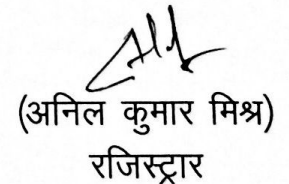 (अनिल कुमार मिश्र)
रजिस्ट्रार